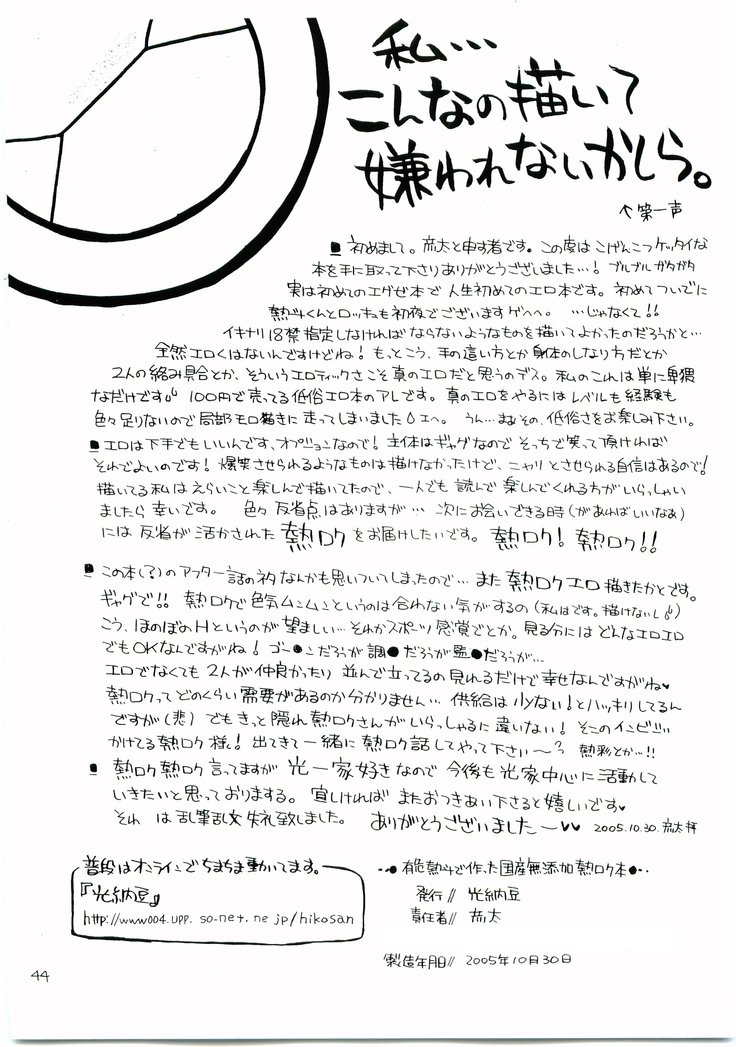 私…
こんなの描いて
嫌われないかしら。
↑第一声
■ 初めまして。亣太と申す者です。この度はこげんこつケッタイな
本を手に取って下さりありがとうございました…! ブルブルガタガタ
実は初めてのエグゼ本で人生初めてのエロ本です。初めてついでに
熱斗くんとロックも初夜でございますゲヘヘ。 …じゃなくて!!
イキナリ18禁指定しなければならないようなものを描いてよかったのだろうかと…
全然エロくはないんですけどね! もっとこう、手の這い方とか身体のしなり方だとか
2人の絡み具合とか、そういうエロティックさこそ真のエロだと思うのデス。私のこれは単に卑猥
なだけです。100円で売ってる低俗エロ本のアレです。真のエロをやるにはレベルも経験も
色々足りないので局部モロ描きに走ってしまいました うん…まぁその、低俗さをお楽しみ下さい。
■ エロは下手でもいいんです、オプションなので! 主体はギャグなのでそっちで笑って頂ければ
それでよいのです! 爆笑させられるようなものは描けなかったけど、ニャリとさせられる自信はあるので!
描いてる私はえらいこと楽しんで描いてたので、一人でも読んで楽しんでくれる方がいらっしゃい
ましたら幸いです。 色々反省点はありますが… 次にお会いできる時(があればいいなあ)
には反省が活かされた熱ロクをお届けしたいです。 熱ロク! 熱ロク!!
■ この本(?)のアフター話のネタなんかも思いついてしまったので… また熱ロクエロ描きたかとです。
ギャグで!! 熱ロクで色気ムンムンというのは合わない気がするの(私はです。描けないし)
こう、ほのぼのHというのが望ましい… それかスポーツ感覚でとか。見る分にはどんなエロエロ
でもOKなんですがね! ゴー●ンだろうが調●だろうが監●だろうが…
エロでなくても2人が仲良かったり並んで立ってるの見れるだけで幸せなんですがね♥
熱ロクってどのくらい需要があるのか分かりません… 供給は少ない!とハッキリしてるん
ですが(悲) でもきっと隠れ熱ロクさんがいらっしゃるに違いない! そこのインビジ
かけてる熱ロク様! 出てきて一緒に熱ロク話してやって下さい〜? 熱彩とか…!!
■ 熱ロク熱ロク言ってますが光一家好きなので今後も光家中心に活動して
いきたいと思っておりまする。宜しければまたおつきあい下さると嬉しいです♥
それでは乱筆乱文失礼致しました。 ありがとうございました〜♥♥ 2005.10.30. 亣太拝
普段はオンラインでちまちま動いてます。
『光納豆』
http://www004.upp.so-net.ne.jp/hikosan
‥●有危熱斗で作った国産無添加熱ロク本●‥
発行// 光納豆
責任者// 亣太
製造年月日// 2005年10月30日
44